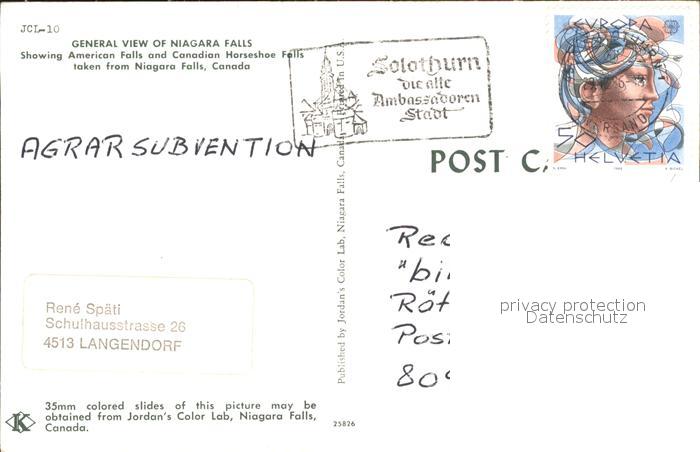 JCL-10
GENERAL VIEW OF NIAGARA FALLS
Showing American Falls and Canadian Horseshoe Falls
taken from Niagara Falls, Canada
Solothurn
die alte
Ambassadoren
Stadt
EUROPA
50
HELVETIA
AGRARSUBVENTION
POST C
Published by Jordan's Color Lab, Niagara Falls, Canada, Printed in U.S.A.
"bi
Rät
Pos
809
privacy protection
Datenschutz
René Späti
Schulhausstrasse 26
4513 LANGENDORF
K
35mm colored slides of this picture may be
obtained from Jordan's Color Lab, Niagara Falls,
Canada.
25826